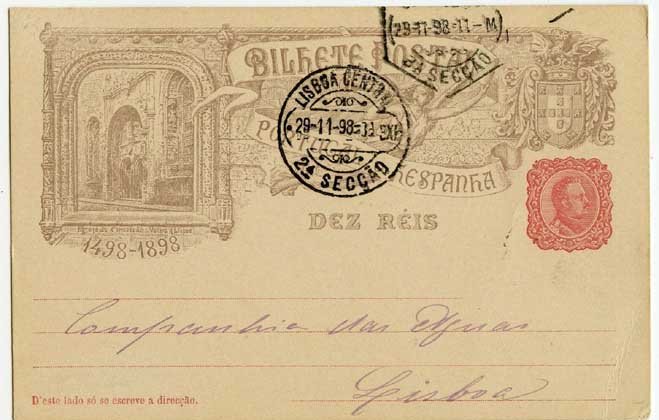 (29-11-98-11-M)
2A SECÇÃO
BILHETE POSTAL
LISBOA CENTRAL
29-11-98
2A SECÇÃO
PORTUGAL
HESPANHA
DEZ RÉIS
1498-1898
Companhia das Aguas
Lisboa
D'este lado só se escreve a direcção.